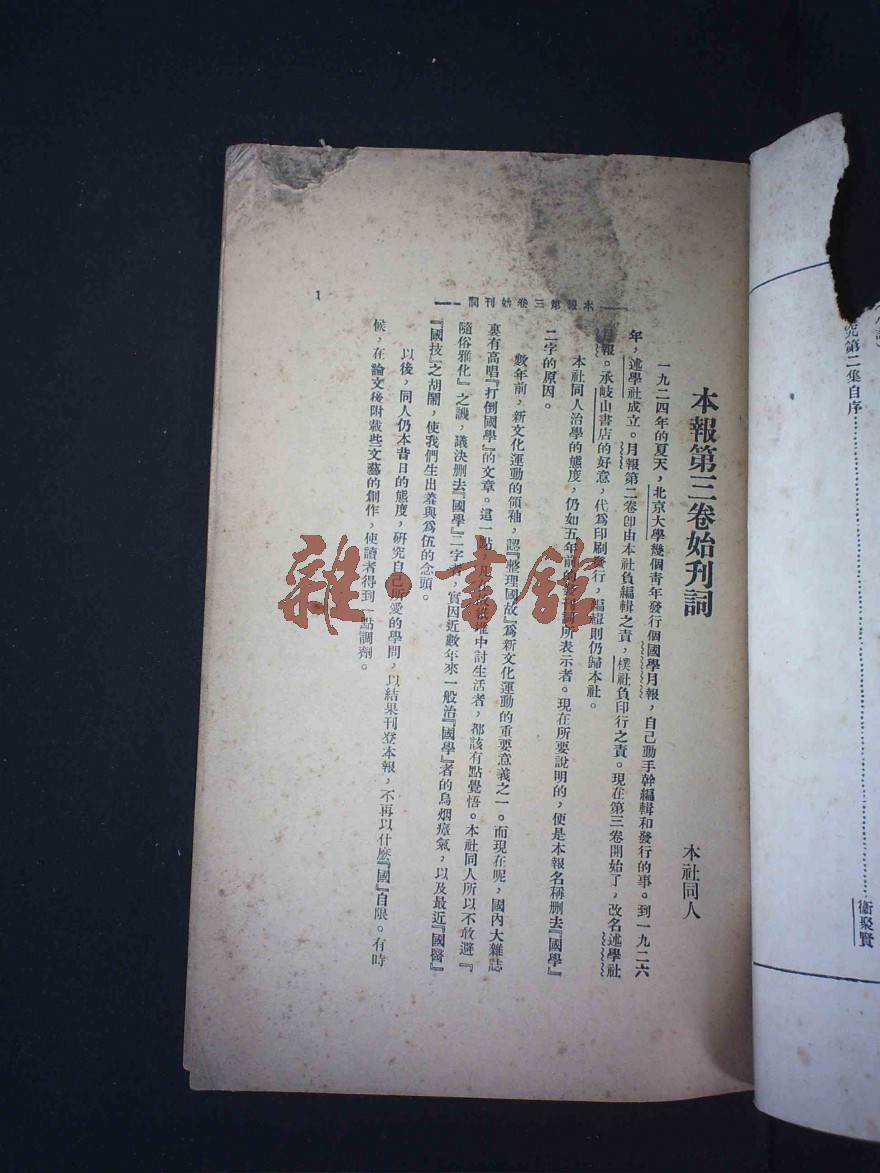 本報第三卷始刋詞
本社同人
一九二四年的夏天，北京大學幾個靑年發行個國學月報，自己動手幹編輯和發行的事。到一九二六
年，述學社成立。月報第二卷卽由本社負編輯之責，樸社負印行之責。現在第三卷開始了，改名述學社
月報。承岐山書店的好意，代爲印刷發行，編輯則仍歸本社。
本社同人治學的態度，仍如五年前的發刊詞所表示者。現在所要說明的，便是本報名稱删去『國學』
二字的原因。
數年前，新文化運動的領袖，認『整理國故』爲新文化運動的重要意義之一。而現在呢，國內大雜誌
裏有高唱『打倒國學』的文章。這一點，凡在故紙堆中討生活者，都該有點覺悟。本社同人所以不敢避『
隨俗雅化』之譏，議決删去『國學』二字者，實因近數年來一般治『國學』者的烏烟瘴氣，以及最近『國醫』
『國技』之胡鬧，使我們生出羞與爲伍的念頭。
以後，同人仍本昔日的態度，硏究自己所愛的學問，以結果刊登本報，不再以什麽『國』自限。有時
候，在論文後附載些文藝的創作，使讀者得到一點調劑。
本報第三卷始刊詞
1
究第二集自序
衞聚賢
雜·書館